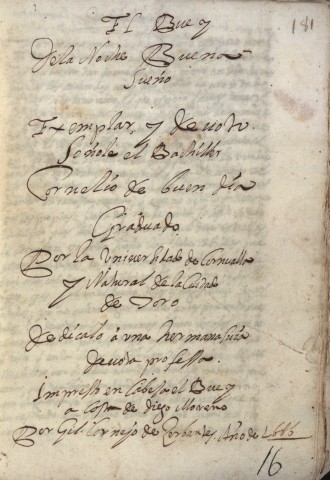 181
El Buey
de la Noche Buena
sueño
Exemplar, y devoto
Soñole el Bachiller
Cornelio de buen día
Graduado
Por la Universidad de Cornualla
y Natural de la Ciudad
de Toro
dedicalo á una hermana suia
devota professa.
Impresso en Cabeza el Buey
a costa de Diego Moreno
Por Gil Cornejo de Año de 1666
16